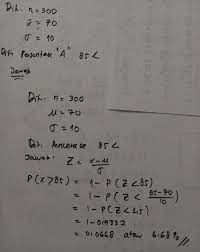 Dik: n = 300
x̄ = 70
σ = 10
Dit: Persentase "A" 85 <
Jawab
Dik: n = 300
μ = 70
σ = 10
Dit: Persentase 85 <
Jawab: Z = x-μ / σ
P(x>85) = 1 - P(Z<85)
= 1 - P(Z < 85-70 / 10)
= 1 - P(Z < 1.5)
= 1 - 0.9332
= 0.0668 atau 6.68%//